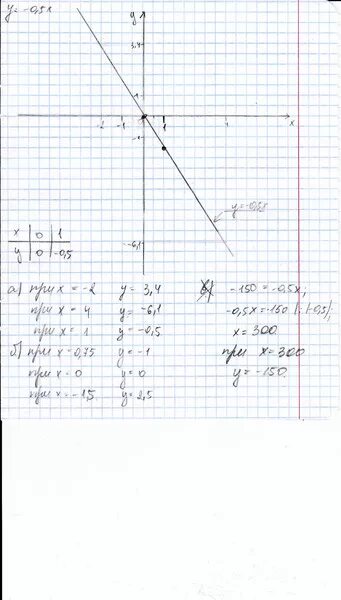 y = -0,5x
y
3,4
1
-2 -1 1 4 x
-1
y = -0,5x
-6,1
x 0 1
y 0 -0,5
а) при x = -2 y = 3,4
при x = 4 y = -6,1
при x = 1 y = -0,5
б) при x = 0,75 y = -1
при x = 0 y = 0
при x = -1,5 y = 2,5
-150 = -0,5x;
-0,5x = -150 |:(-0,5);
x = 300
при x = 300
y = -150